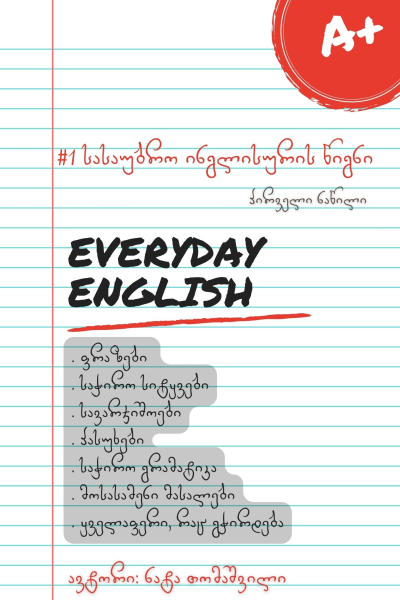 A+
#1 სასაუბრო ინგლისურის წიგნი
პირველი ნაწილი
EVERYDAY
ENGLISH
. ფრაზები
. საჭირო სიტყვები
. სავარჯიშოები
. პასუხები
. საჭირო გრამატიკა
. მოსასმენი მასალები
. ყველაფერი, რაც გჭირდება
ავტორი: ნატა თომაშვილი